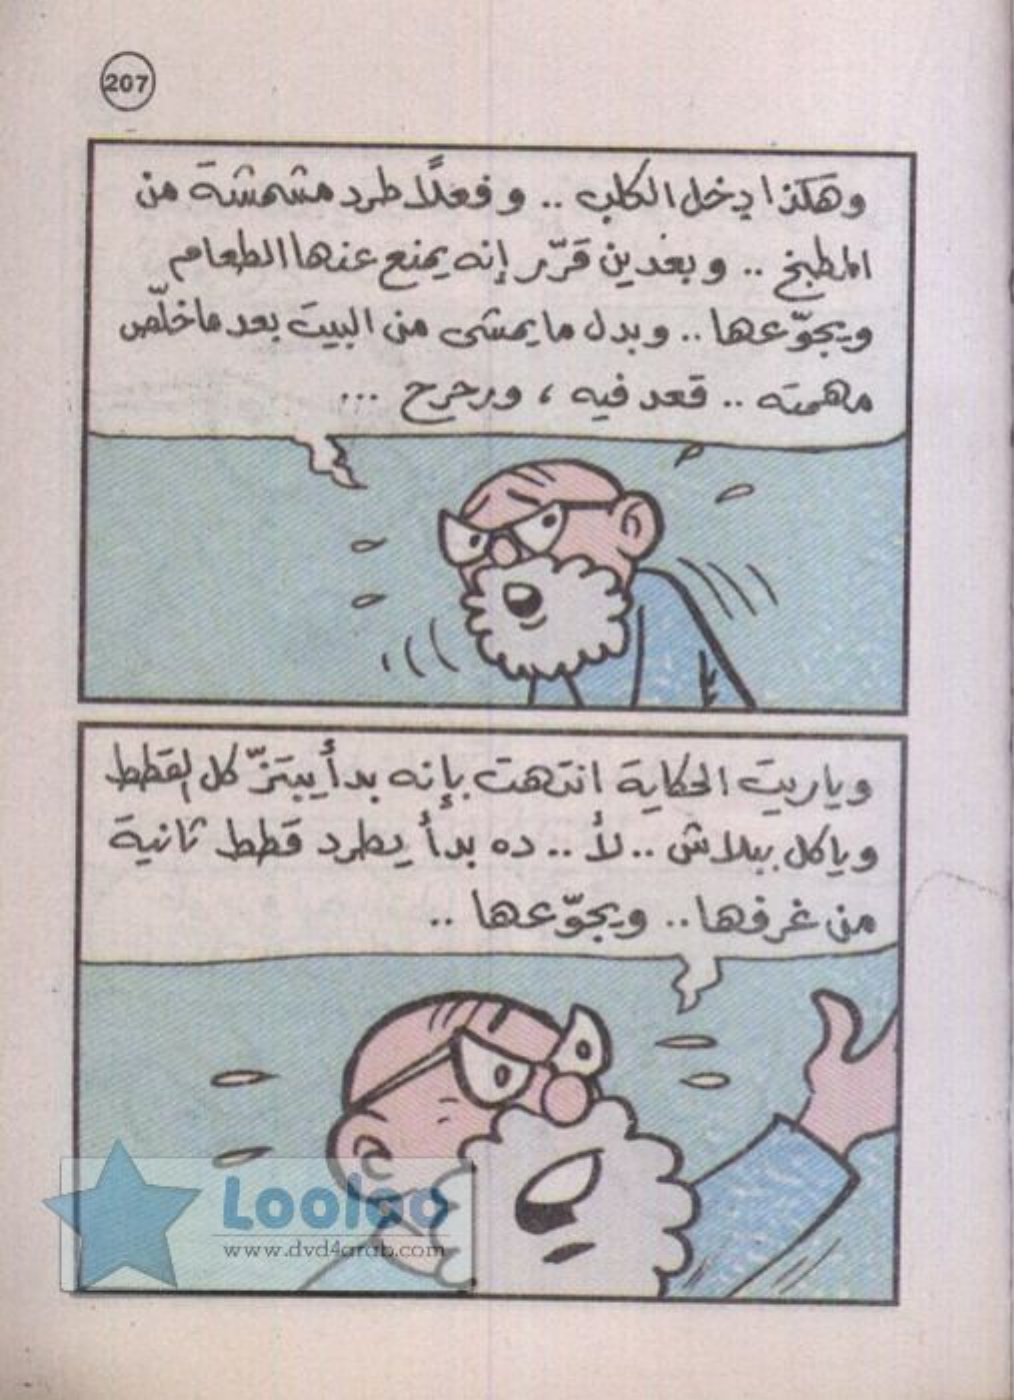 207
وهكذا دخل الكلب .. وفعلًا طرد مشمشة من
المطبخ .. وبعدين قرّر إنه يمنع عنها الطعام
ويجوّعها .. وبدل ما يمشى من البيت بعد ما خلّص
مهمته .. قعد فيه ، ورحرح ...
وياريت الحكاية انتهت بإنه بدأ يبتزّ كل القطط
وياكل ببلاش .. لأ .. ده بدأ يطرد قطط تانية
من غرفها .. ويجوّعها ..
Looloo
www.dvd4arab.com